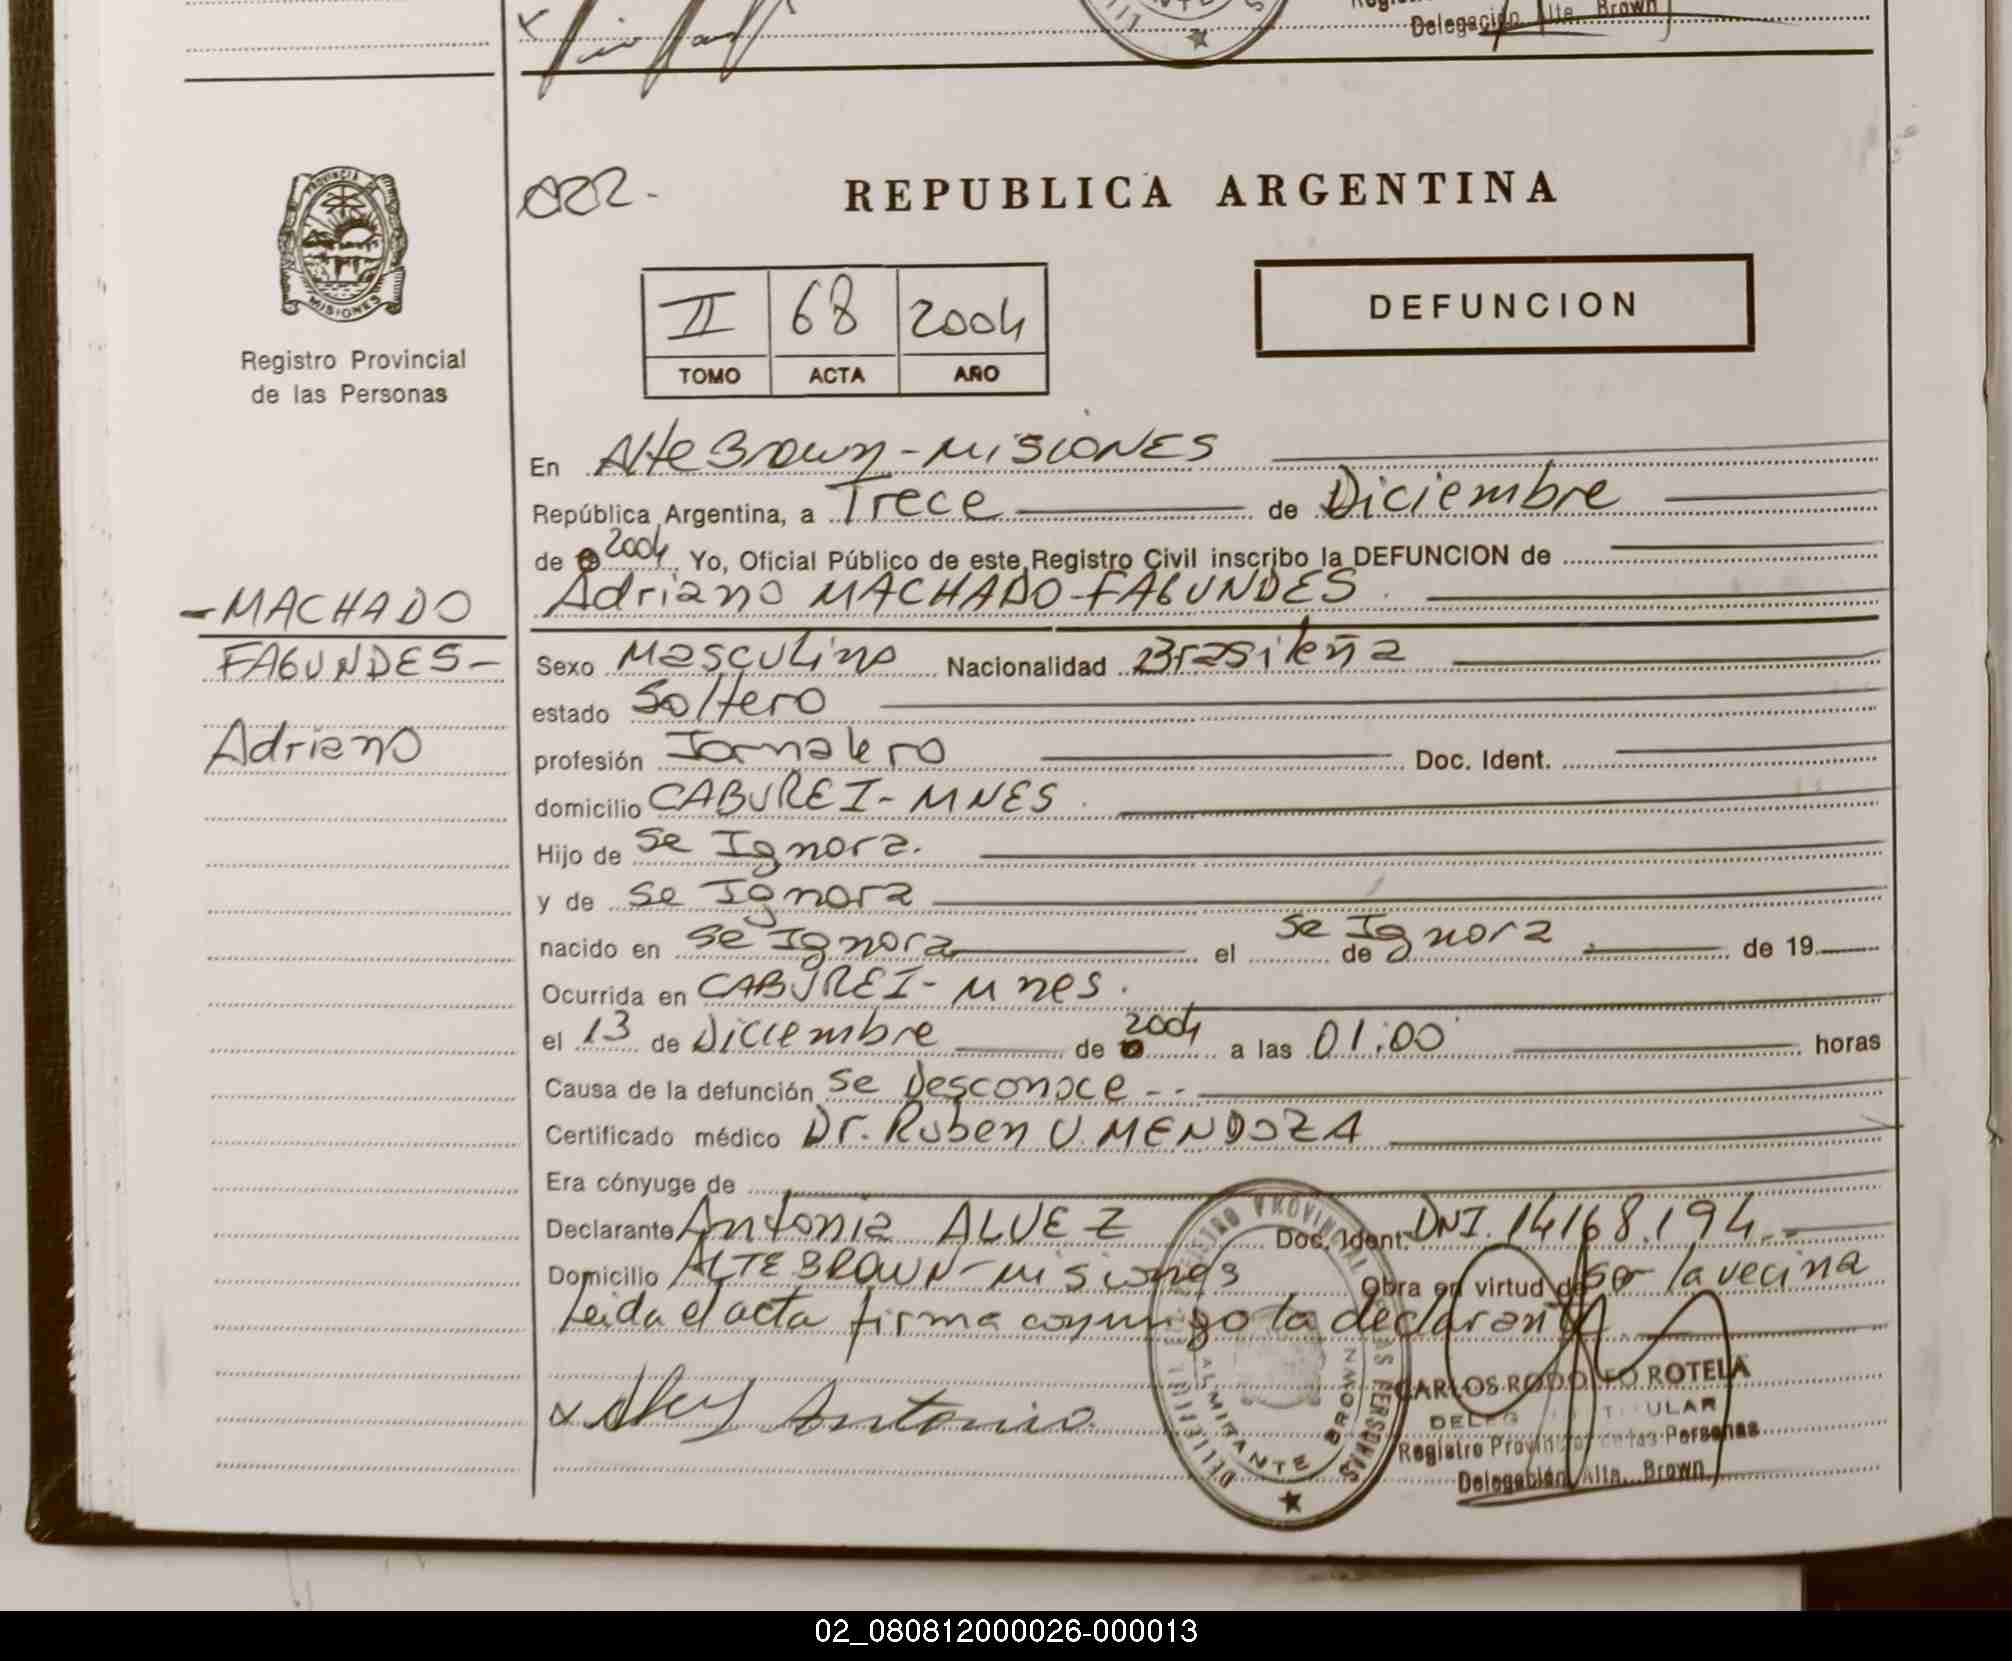 Delegación Alte. Brown
PROVINCIA DE
MISIONES
Registro Provincial
de las Personas
022.-
REPUBLICA ARGENTINA
II 68 2004
TOMO ACTA AÑO
DEFUNCION
En Alte Brown - MISIONES
República Argentina, a Trece de Diciembre
de 2004 Yo, Oficial Público de este Registro Civil inscribo la DEFUNCION de
Adriano MACHADO-FAGUNDES.
- MACHADO
FAGUNDES -
Adriano
Sexo Masculino Nacionalidad Brasileña
estado Soltero
profesión Jornalero Doc. Ident.
domicilio CABUREI - MNES.
Hijo de se Ignora.
y de se Ignora
nacido en se Ignora el de se Ignora de 19
Ocurrida en CABUREI - Mnes.
el 13 de Diciembre de 2004 a las 01:00 horas
Causa de la defunción se Desconoce --
Certificado médico Dr. Ruben U. MENDOZA
Era cónyuge de
Declarante Antonia ALVEZ Doc. Ident. DNI. 14168.194.-
Domicilio ALTE BROWN - misiones Obra en virtud de ser la vecina
Leida el acta firma conmigo la declarante.
x Antonio
REGISTRO PROVINCIAL DE LAS PERSONAS
ALMIRANTE BROWN
CARLOS RODOLFO ROTELA
DELEGADO TITULAR
Registro Provincial de las Personas
Delegación Alte. Brown
02_080812000026-000013